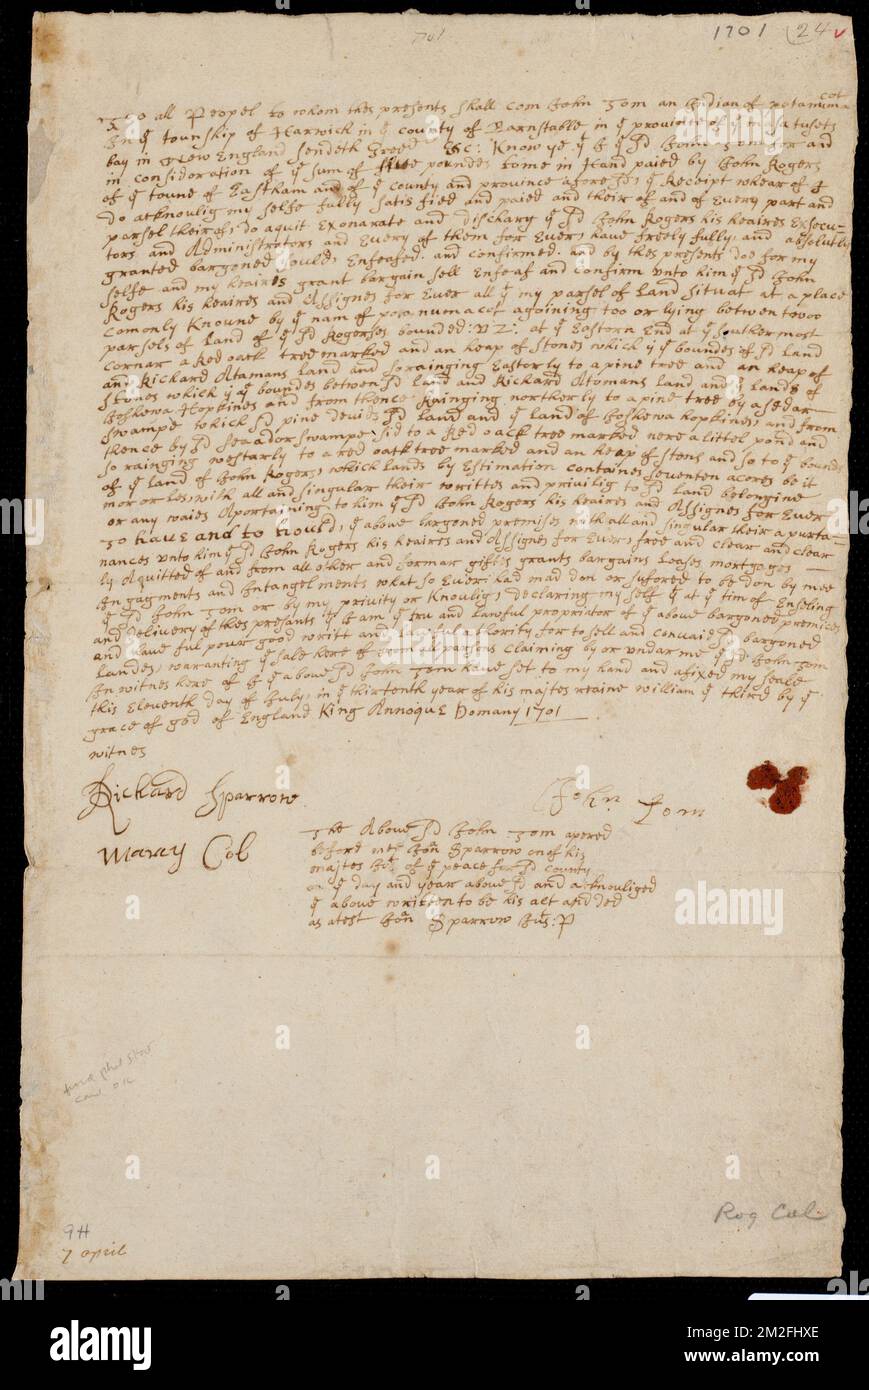 701
1701 24 v
To all Peopel to whom thes presents shall com John Tom an Indian of potanumacot
In yͤ township of Harwich in yͤ county of Barnstable in yͤ province of yͤ masatusets
bay in New England sendeth Greed &c: Know ye yͭ I yͤ sͩ John Tom for and
in consideration of yͤ sum of five poundes to me in Hand paied by John Rogers
of yͤ toune of Eastham and of yͤ county and province aforesͩ, yͤ Receipt whear of I
do acknoulig my selfe fully satisfied and paied and their of and of Every part and
parsel theirof, do aquit Exonarate and discharg yͤ sͩ John Rogers his heaires Execu-
tors and Administrators and Every of them for Ever, have freely fully, and absolutly
granted bargoned sould, Enfeafed. and confirmed. and by thes presents doe for my
selfe and my heaires grant bargain sell Enfeaf and confirm unto him yͤ sͩ John
Rogers his heaires and Assignes for Ever all yͭ my parsel of Land situat at a place
comonly knoune by yͤ nam of potanumacot ajoining too or lying betwen twoo
parsels of Land of yͤ sͩ Rogerses bounded: viz: at yͤ Eastorn End at yͤ southermost
cornar a Red oack tree marked and an heap of stones which is yͤ bounds of sͩ Land
and Richard Atamans Land and so rainging Easterly to a pine tree and an heap of
stones which is yͤ boundes betwen sͩ land and Richard Atomans land and yͤ Lands of
Joshewa Hopkines and from thence Rainging northerly to a pine tree by a sedar
swampe which sͩ pine devides sͩ Land and yͤ land of Joshewa hopkins, and from
thence by sͩ seador swampe sid to a Red oack tree marked nere a littel pond and
so rainging westarly to a red oak tree marked and an heap of stons and so to yͤ bounds
of yͤ land of John Rogers, which lands by Estimation containes seventen acores be it
mor or les, with all and singular their writtes and privilig to sͩ Land belongine
or any waies Aportaining to him yͤ sͩ John Rogers his heaires and Assignes for Ever
To have and to hould, yͤ above bargoned premises with all and singular their apurta-
nances unto him yͤ sͩ John Rogers his heaires and Assignes for Ever, free and clear and clear
ly Aquitted of and from all other and formar gifts grants bargains Leases mortgages
Ingagments and Intangelments what so Ever: had mad don or sufored to be don by mee
yͤ sͩ John Tom or by my privity or knoulig, declaring my self yͭ at yͤ tim of Ensealing
and delivery of thes presants yͭ I am yͤ tru and Lawful proprietor of yͤ above bargoned premices
and have ful pour good writt and Lawful athority for to sell and convaie sͩ bargoned
Landes, waranting yͤ sale here of from all parsons claiming by or undar me yͤ sͩ John Tom
In witnes here of I yͤ above sͩ John Tom have set to my hand and afixed my seale
this Eleventh day of July: in yͤ thirtenth year of his majtes raine william yͤ third by yͤ
grace of god of England King Annoque Domany 1701
witnes
Richard Sparrow John Tom
Marcy Col
The Above sͩ John Tom apered
before mee Jonͣ Sparrow on of his
majtes Jusͭ of yͤ peace for sͩ County
on yͤ day and year above sͩ and acknouliged
yͤ above written to be his act and ded
as atest Jonͣ Sparrow Jus: P
Rog Col.
9H
7 april